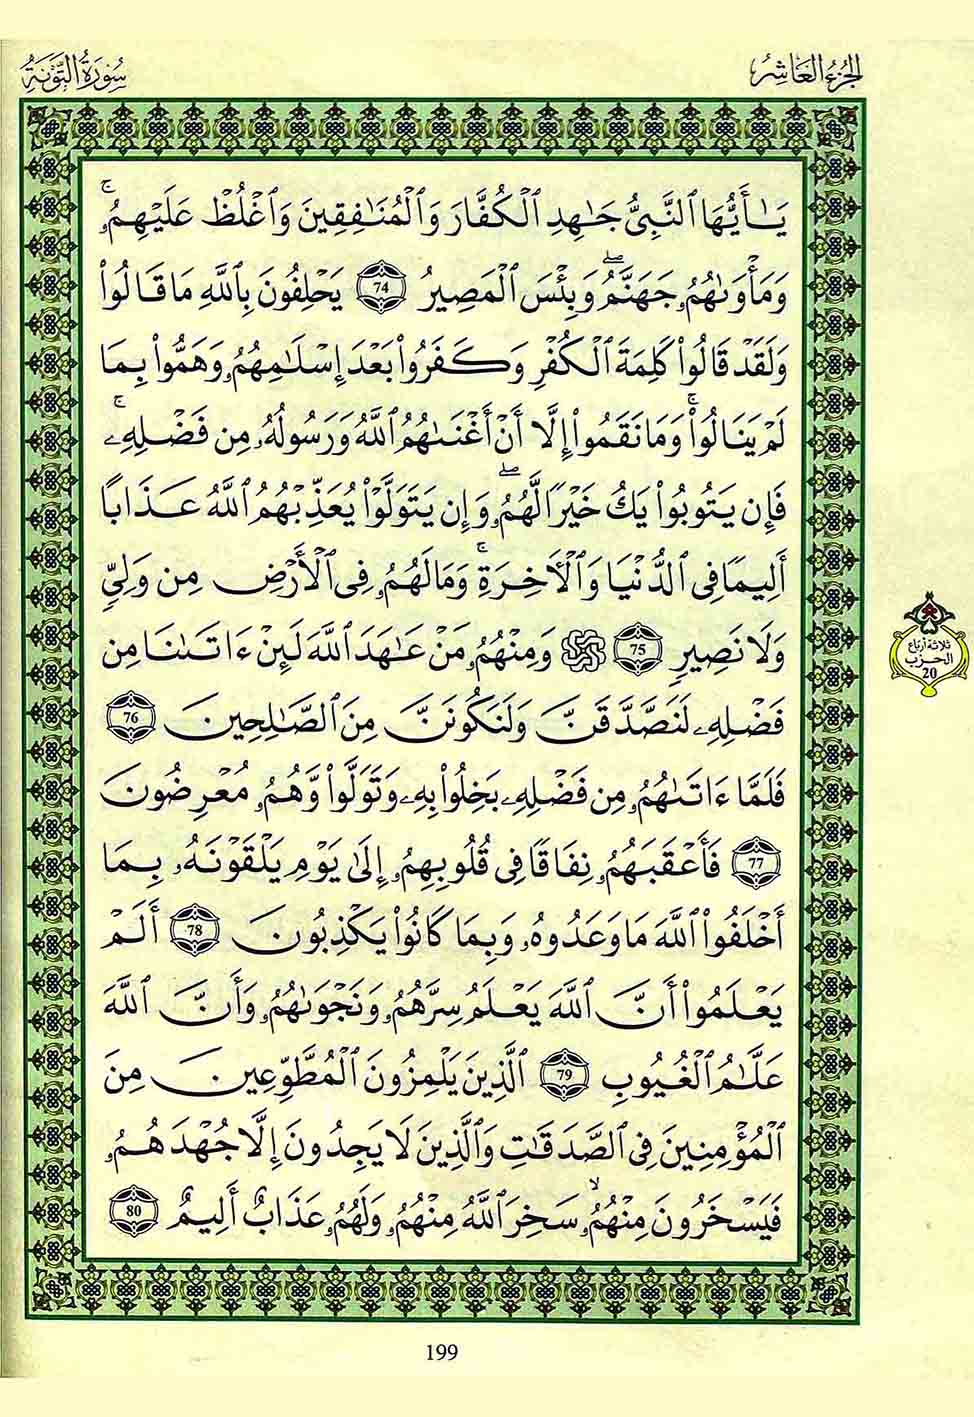 الجزء العاشر
سورة التوبة
يَٰٓأَيُّهَا ٱلنَّبِيُّ جَٰهِدِ ٱلْكُفَّارَ وَٱلْمُنَٰفِقِينَ وَٱغْلُظْ عَلَيْهِمُۥۚ
وَمَأْوَىٰهُمُۥ جَهَنَّمُۖ وَبِئْسَ ٱلْمَصِيرُ 74 يَحْلِفُونَ بِٱللَّهِ مَا قَالُوا۟
وَلَقَدْ قَالُوا۟ كَلِمَةَ ٱلْكُفْرِ وَكَفَرُوا۟ بَعْدَ إِسْلَٰمِهِمُۥ وَهَمُّوا۟ بِمَا
لَمْ يَنَالُوا۟ۚ وَمَا نَقَمُوا۟ إِلَّا أَنْ أَغْنَىٰهُمُ ٱللَّهُ وَرَسُولُهُۥ مِن فَضْلِهِۦۚ
فَإِن يَتُوبُوا۟ يَكُ خَيْرًا لَّهُمُۥۖ وَإِن يَتَوَلَّوْا۟ يُعَذِّبْهُمُ ٱللَّهُ عَذَابًا
أَلِيمًا فِى ٱلدُّنْيَا وَٱلْأَخِرَةِۚ وَمَا لَهُمُۥ فِى ٱلْأَرْضِ مِن وَلِىٍّ
وَلَا نَصِيرٍ 75 وَمِنْهُمُۥ مَنْ عَٰهَدَ ٱللَّهَ لَئِنْ ءَاتَىٰنَا مِن
فَضْلِهِۦ لَنَصَّدَّقَنَّ وَلَنَكُونَنَّ مِنَ ٱلصَّٰلِحِينَ 76
فَلَمَّا ءَاتَىٰهُمُۥ مِن فَضْلِهِۦ بَخِلُوا۟ بِهِۦ وَتَوَلَّوا۟ وَّهُمُۥ مُعْرِضُونَ
77 فَأَعْقَبَهُمُۥ نِفَاقًا فِى قُلُوبِهِمُۥ إِلَىٰ يَوْمِ يَلْقَوْنَهُۥ بِمَا
أَخْلَفُوا۟ ٱللَّهَ مَا وَعَدُوهُۥ وَبِمَا كَانُوا۟ يَكْذِبُونَ 78 أَلَمْ
يَعْلَمُوا۟ أَنَّ ٱللَّهَ يَعْلَمُ سِرَّهُمُۥ وَنَجْوَىٰهُمُۥ وَأَنَّ ٱللَّهَ
عَلَّٰمُ ٱلْغُيُوبِ 79 ٱلَّذِينَ يَلْمِزُونَ ٱلْمُطَّوِّعِينَ مِنَ
ٱلْمُؤْمِنِينَ فِى ٱلصَّدَقَٰتِ وَٱلَّذِينَ لَا يَجِدُونَ إِلَّا جُهْدَهُمُۥ
فَيَسْخَرُونَ مِنْهُمُۥۙ سَخِرَ ٱللَّهُ مِنْهُمُۥ وَلَهُمُۥ عَذَابٌ أَلِيمٌ 80
ثلاثة أرباع
الحزب
20
199